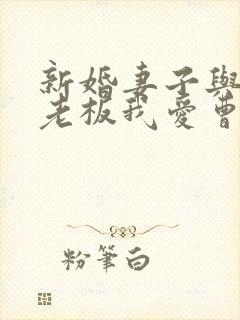 新婚妻子與
老板我愛曹
粉筆白